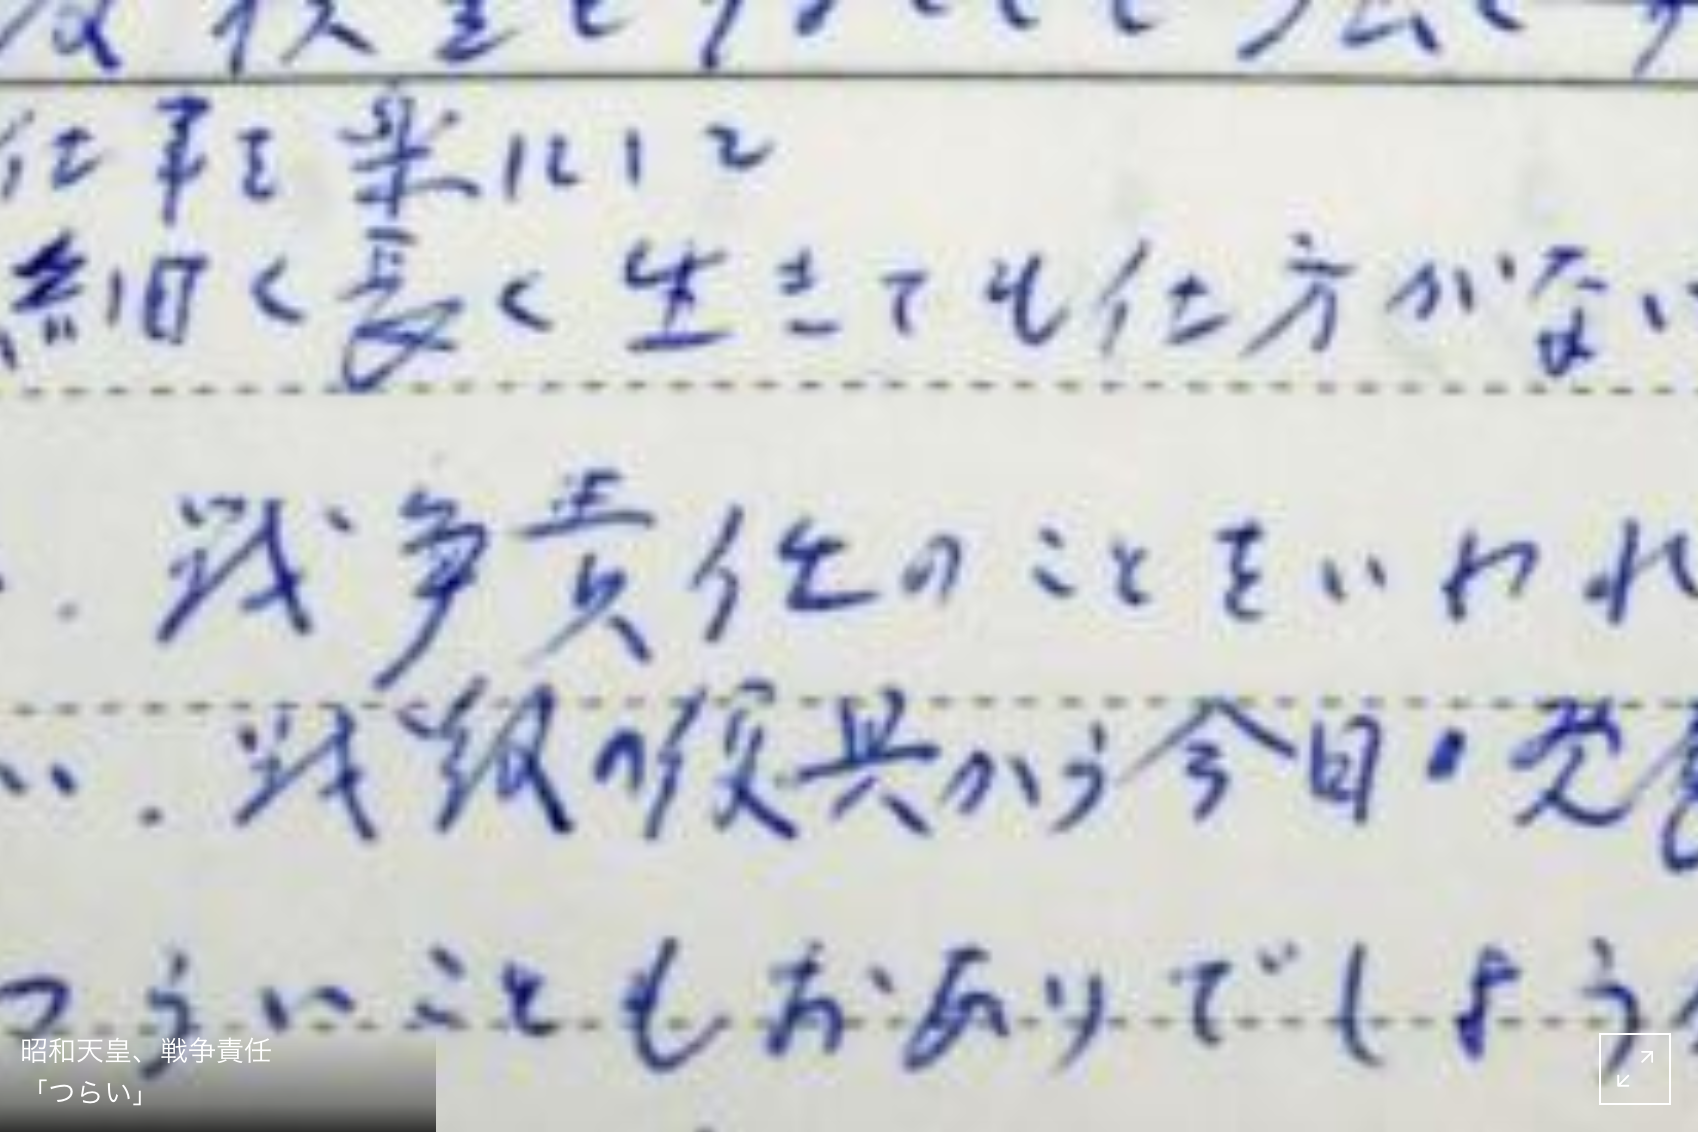 仕事を楽にして
細く長く生きても仕方がない
戦争責任のことをいわれ
い. 戦後の復興から今日の発
つらいこともおありでしょう
昭和天皇、戦争責任
「つらい」